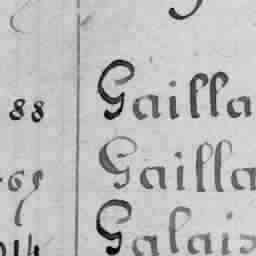 88 Gailla
Gailla
Galais